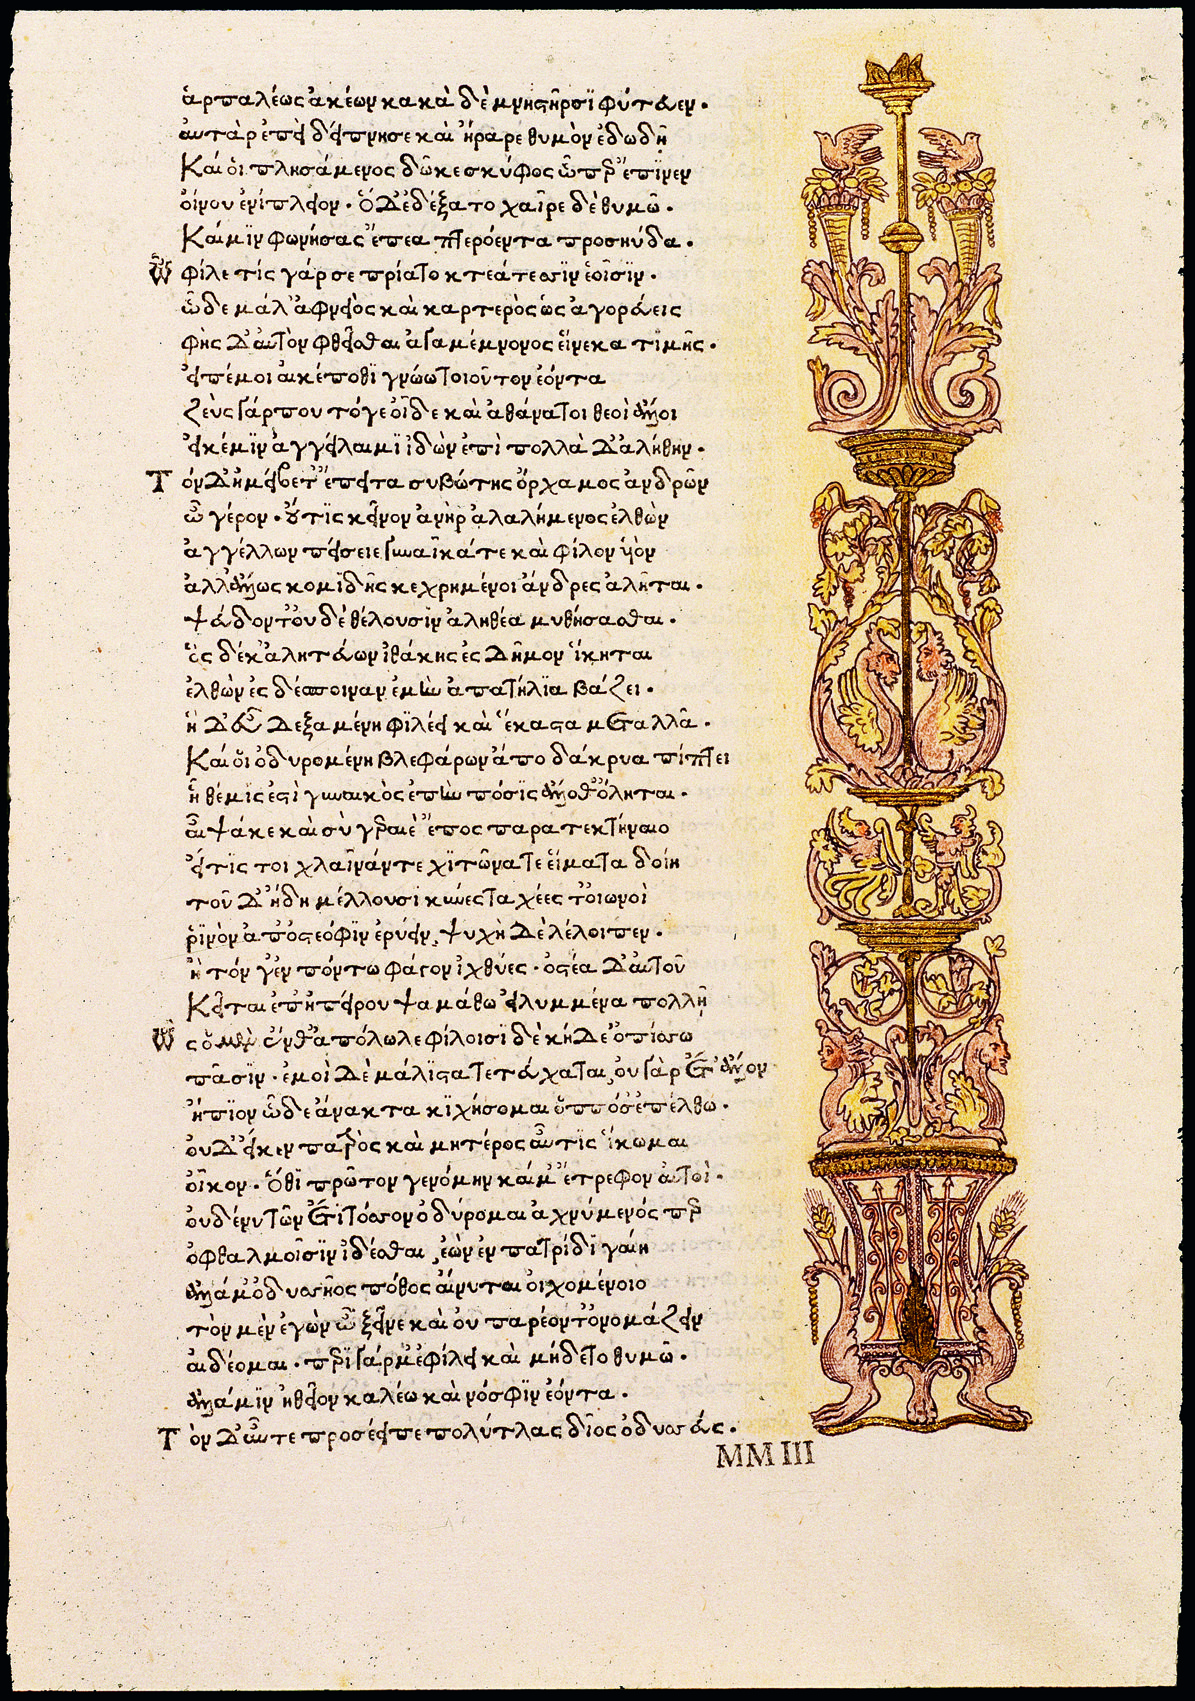 ἁρπαλέως ἀκέων κακὰ δὲ μνηστῆρσϊ φύτευεν.
ἀυτὰρ ἐπεὶ δείπνησε καὶ ἤραρε θυμὸν ἐδωδῆ
Καί οἱ πλησάμενος δῶκε σκύφος ὧπερ ἔπϊνεν
ὀίνου ἐνίπλειον· ὁ δ' ἐδέξατο χαῖρε δὲ θυμῶ.
Καί μϊν φωνήσας ἔπεα πτερόεντα προσηύδα.
Ὦ φίλε τίς γάρ σε πρίατο κτεάτεσσϊν ἑοῖσϊν.
ὧδε μάλ' ἀφνειὸς καὶ καρτερὸς ὡς ἀγορεύεις
φὴς δ' ἀυτὸν φθεῖσθαι ἀγαμέμνονος εἵνεκα τιμῆς.
εἰπέ μοι αἴκέ ποθϊ γνώω τοιοῦτον ἐόντα
Ζεὺς γάρ που τόγε οἶδε καὶ ἀθάνατοι θεοὶ ἄλλοι
εἰ κέ μϊν ἀγγείλαιμϊ ἰδὼν ἐπὶ πολλὰ δ' ἀλήθην.
Τὸν δ' ἠμείβετ' ἔπειτα συβώτης ὄρχαμος ἀνδρῶν
ὦ γέρον. οὔτϊς κεῖνον ἀνὴρ ἀλαλήμενος ἐλθὼν
ἀγγέλλων πείσειε γυναῖκά τε καὶ φίλον υἱὸν
ἀλλ' ἄλλως κομϊδῆς κεχρημένοι ἄνδρες ἀλῆται.
ψεύδοντ' ὀυδ' ἐθέλουσϊν ἀληθέα μυθήσασθαι.
ὃς δέ κ' ἀλητεύων ἰθάκης ἐς δῆμον ἵκηται
ἐλθὼν ἐς δέσποιναν ἐμὴν ἀπατήλϊα βάζει.
ἡ δ' εὖ δεξαμένη φϊλέει καὶ ἕκαστα μεταλλᾶ.
Καί οἱ ὀδυρομένη βλεφάρων ἄπο δάκρυα πίπτει
ἣ θέμϊς ἐστὶ γυναικὸς ἐπὴν πόσϊς ἄλλοθ' ὄληται.
αἶψά κε καὶ σὺ γεραιὲ ἔπος παρατεκτήναιο
εἴ τϊς τοι χλαῖνάν τε χϊτῶνά τε εἵματα δοίη
τοῦ δ' ἤδη μέλλουσϊ κύνες ταχέες τ' ὀιωνοὶ
ῥϊνὸν ἀπ' ὀστεόφϊν ἐρύειν, ψυχὴ δὲ λέλοιπεν.
ἢ τόν γ' ἐν πόντω φάγον ἰχθύες. ὀστέα δ' ἀυτοῦ
Κεῖται ἐπ' ἠπείρου ψαμάθω εἰλυμμένα πολλῆ
Ὣς ὁ μὲν ἔνθ' ἀπόλωλε φίλοισϊ δὲ κήδε' ὀπίσσω
πᾶσϊν. ἐμοὶ δὲ μάλιστα τετεύχαται, ὀυ γὰρ ἔτ' ἄλλον
ἤπϊον ὧδε ἄνακτα κϊχήσομαι ὁππόσ' ἐπέλθω.
ὀυδ' εἴ κεν πατρὸς καὶ μητέρος αὖτϊς ἵκωμαι
ὀῖκον. ὅθϊ πρῶτον γενόμην καί μ' ἔτρεφον ἀυτοὶ.
ὀυδέ νυ τῶν ἔτϊ τόσσον ὀδύρομαι ἀχνύμενός περ
ὀφθαλμοῖσϊν ἰδέσθαι, ἐὼν ἐν πατρίδϊ γαίη
ἀλλά μ' ὀδυσσῆος πόθος αἴνυται οἰχομένοιο
τὸν μὲν ἐγὼν ὦ ξεῖνε καὶ ὀυ παρέοντ' ὀνομάζειν
αἰδέομαι. περϊ γάρ μ' ἐφίλει καὶ μήδετο θυμῶ.
ἀλλά μϊν ἠθεῖον καλέω καὶ νόσφϊν ἐόντα.
Τὸν δ' αὖτε προσέειπε πολύτλας δῖος ὀδυσσεύς.
MMIII